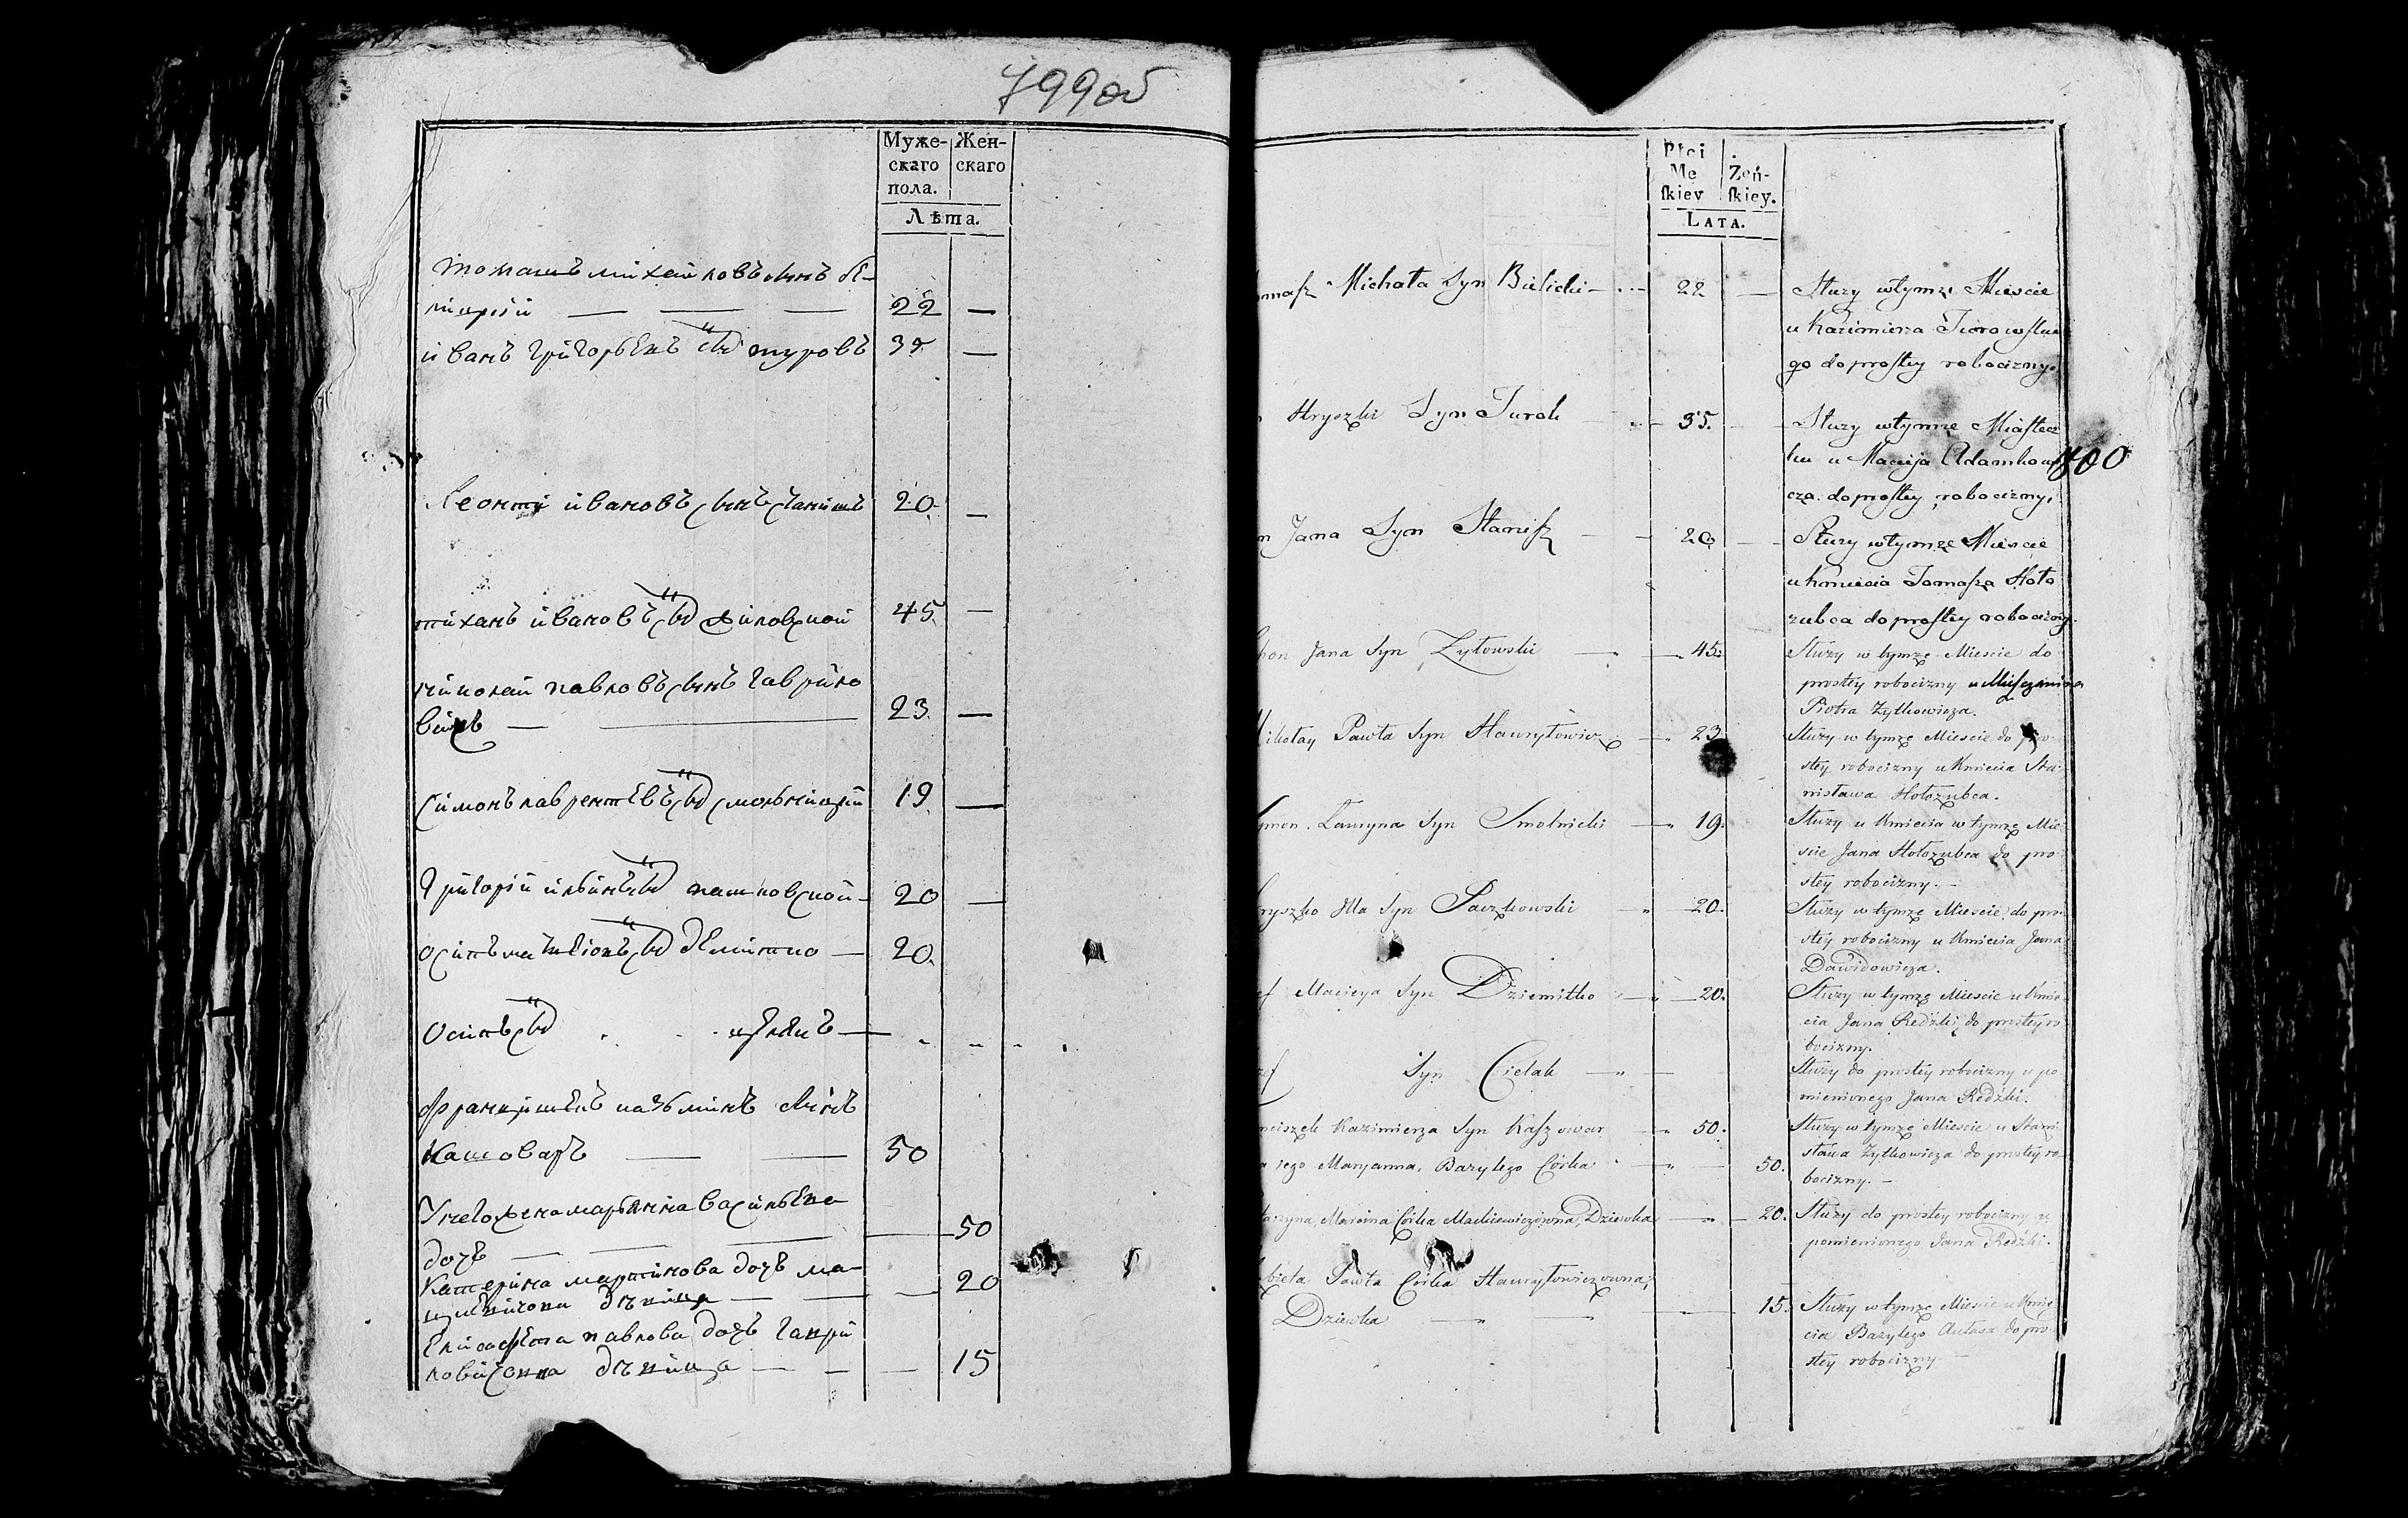 799об
Муже-
скаго
пола.
Жен-
скаго
Лѣта.
томашъ михайловъ сынъ бѣ-
лицкій — — — 22 —
иванъ григорьевъ сынъ туровъ 35 —
Леонти ивановъ сынъ станишъ 20 —
тиханъ ивановъ сынъ жиловской 45 —
николай павловъ сынъ гаврило
вичъ — — 23. —
Симонъ лаврентьевъ сынъ смольницкій 19 —
Григорій ильинъ сынъ пашковской — 20 —
осипъ матвѣювъ сынъ дѣмитко — 20.
Осипъ сынъ цѣлякъ —
францишекъ казьминъ сынъ
Кашоваръ — — 50
У него жена марьянна васильева
дочь — — — 50
Катерина мартинова дочь ма-
цкѣвичовна дѣвица — — — 20
Елисавѣта павлова дочь гаври
ловичовна дѣвица — — — 15
Płci
Me
ſkiey
Żeń-
ſkiey.
LATA.
maſz Michała Syn Bielicki — 22 —
Służy w tymże Mieście
u Kazimierza
go do proſtey robocizny.
Hryszki Syn Turok 35.
Służy w tymże Miaſtecz
ku u Macieja Adamkowi
cza do proſtey robocizny.
800
n Jana Syn Staniſz — 20 —
Służy w tymże Mieście
u Kmiecia Tomaſza Hoło
zubca do proſtey robocizny.
hon Jana Syn Żyłowski — 45.
Służy w tymże Mieście do
prostey robocizny u Mieſzczanina
Piotra Żytkowicza.
ikołay Pawła Syn Hawryłowicz — 23
Służy w tymże Mieście do pro-
stey robocizny u Kmiecia Sta-
nisława Hołozubca.
ymon Ławryna Syn Smolnicki — 19.
Służy u Kmiecia w tymże Mie-
ście Jana Hołozubca do pro-
stey robocizny. —
ryszko Illa Syn Paszkowski 20.
Służy w tymże Mieście do pro-
stey robocizny u Kmiecia Jana
Dawidowicza.
ef Macieya Syn Dziemitko — 20.
Służy w tymże Mieście u Kmie-
cia Jana Redźki do prostey ro-
bocizny.
ef Syn Cielak —
Służy do prostey robocizny u po
mienionego Jana Redźki.
nciszek Kazimierza Syn Kaſzowar — 50.
Służy w tymże Mieście u Stani-
a jego Maryanna, Bazylego Córka — 50.
sława Żytkowicza do prostey ro-
bocizny. —
tarzyna, Marcina Córka Mackiewiczówna, Dziewka — 20.
Służy do prostey robocizny u
pomienionego Jana Redźki.
bieta Pawła Córka Hawryłowiczowna,
Dziewka — — 15.
Służy w tymże Mieście u Kmie-
cia Bazylego do pro-
stey robocizny —